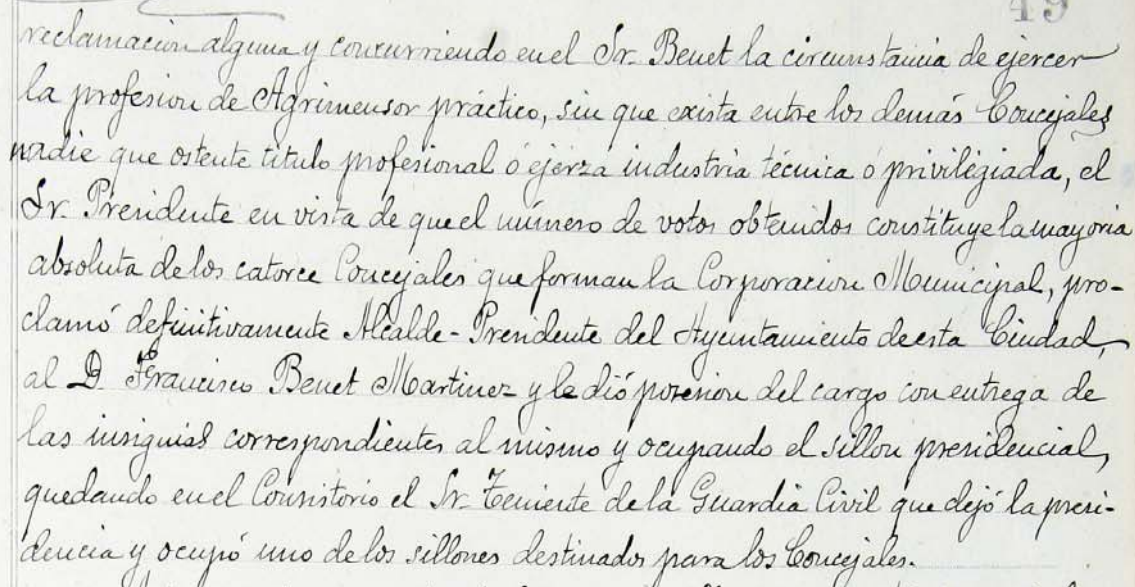 49
reclamacion alguna y concurriendo en el Sr. Benet la circunstancia de ejercer
la profesion de Agrimensor práctico, sin que exista entre los demás Concejales
nadie que ostente titulo profesional ó ejerza industria técnica ó privilegiada, el
Sr. Presidente en vista de que el número de votos obtenidos constituye la mayoria
absoluta de los catorce Concejales que forman la Corporacion Municipal, pro-
clamó definitivamente Alcalde-Presidente del Ayuntamiento de esta Ciudad,
al D. Francisco Benet Martinez y le dió posesion del cargo con entrega de
las insignias correspondientes al mismo y ocupando el sillon presidencial,
quedando en el Consistorio el Sr. Teniente de la Guardia Civil que dejó la presi-
dencia y ocupó uno de los sillones destinados para los Concejales.